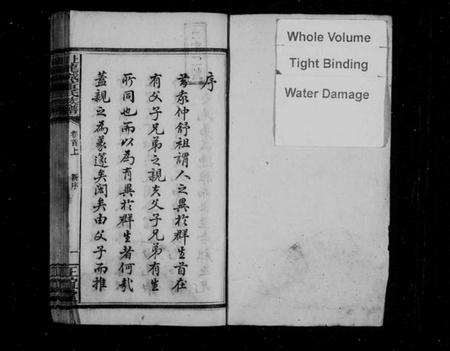 序
昔家仲舒祖謂人之異於群生首在
有父子兄弟之親夫父子兄弟有生
所同也而以為有異於群生者何哉
蓋親之為義遂矣闊矣由父子而推
卷首上
新序
一
Whole Volume
Tight Binding
Water Damage